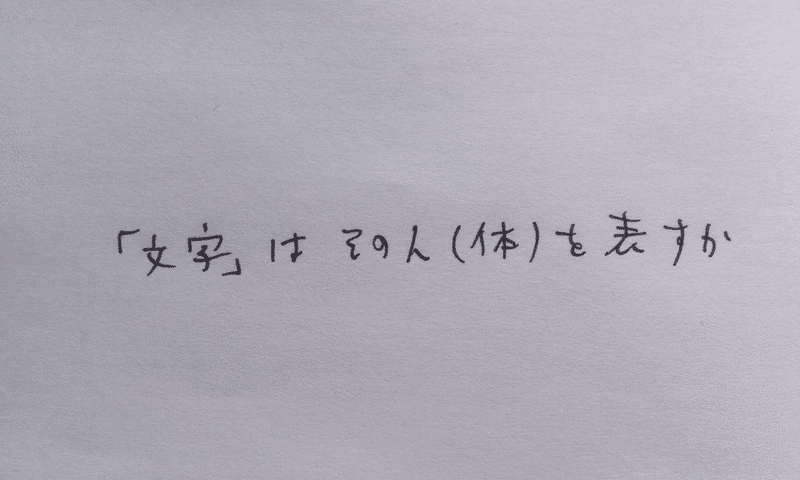 「文字」はその人(体)を表すか